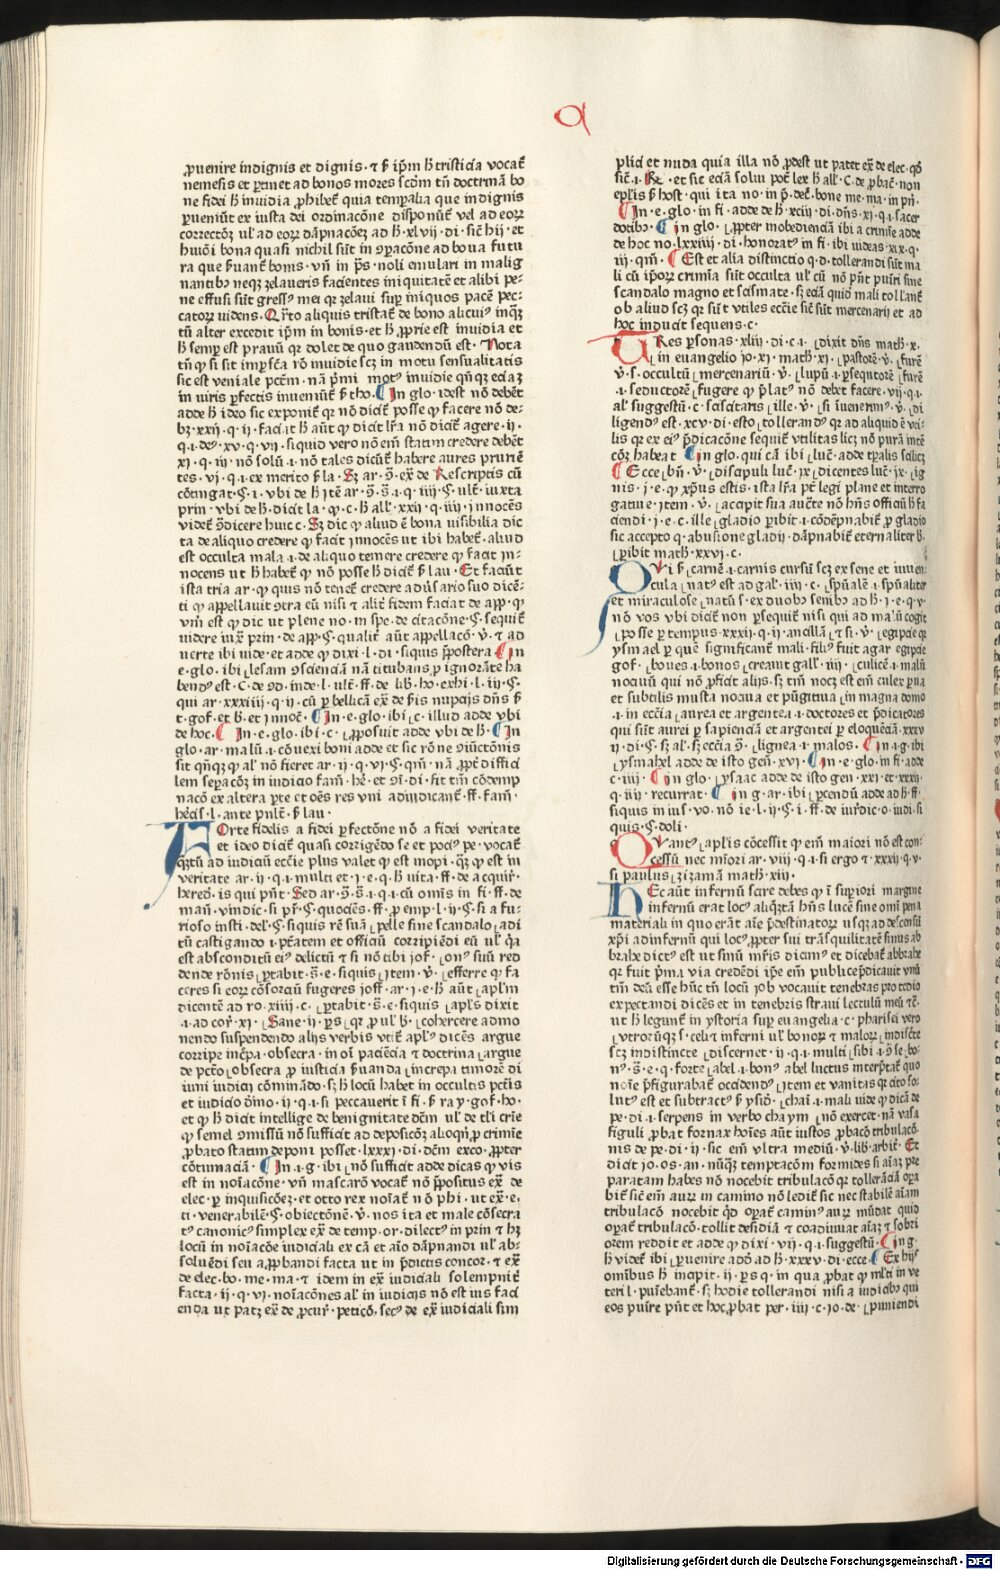 a
ꝓuenire indignis et dignis · ⁊ ẜ ip̄m h̄ tristicia vocat̄
nemesis et ꝑtinet ad bonos mores scd̄m tn̄ doctrinā bo
ne fidei h̄ inuidia ꝓhibet̄ quia tempalia que indignis
ꝓueniūt ex iusta dei ordinacōne disponūt̄ vel ad eoꝝ
correctōꝫ ul' ad eoꝝ dāpnacōeꝫ ad h̄ · xlvij · di · sic̄ hij · et
huiōi bona quasi nichil sūt in ꝯpacōne ad bona futu
ra que ẜuant̄ bonis · vn̄ in p̄s · noli emulari in malig
nantibꝰ neqꝫ zelaueris facientes iniquitatē et alibi pe-
ne effusi sūt gressꝰ mei qꝛ zelaui suꝑ iniquos pacē pec-
catoꝝ videns · Qr̄to aliquis tristat̄ de bono alicuiꝰ inqᷓꝫ
tū alter excedit ip̄m in bonis · et h̄ ꝓprie est inuidia et
h̄ semꝑ est prauū qꝛ dolet de quo gaudendū est · Nota
tn̄ ꝙ si sit imꝑfc̄a rō inuidie scꝫ in motu sensualitatis
sic est veniale pctm̄ · nā p̄mi motꝰ inuidie qn̄qꝫ eciaꝫ
in viris ꝑfectis inueniūt̄ ẜ tho · In glo · idest nō debēt
adde h̄ ideo sic exponit̄ qꝛ nō dicit̄ posse ꝙ facere nō de-
bꝫ · xxij · q · ij · faciat h̄ aūt ꝙ dicit lr̄a nō dicit̄ agere · ij ·
q · i · deꝰ · xv · q · vij · siquid vero nō em̄ statim credere debēt
xj · q · iij · nō solū · i · nō tales dicūt̄ habere aures prurien
tes · vj · q · i · ex merito ẜ la · Sꝫ ar · ꝯ · ex̄ de Rescriptis cū
cōtingat · § · i · vbi de h̄
prin · vbi de h̄ dicit la · q · c · h̄ all' · xxij · q · iiij · innocēs
videt̄ ꝯdicere huic c · Sꝫ dic ꝙ aliud ē bona visibilia dic
ta de aliquo credere ꝙ facit innocēs ut ibi habet̄ · aliud
est occulta mala · i · de aliquo temere credere ꝙ facit in-
nocens ut h̄ habet̄ ꝙ nō posse h̄ dicit̄ ẜ lau · Et faciūt
ista tria ar · ꝙ quis nō tenet̄ credere adūsario suo dicē-
ti ꝙ appellauit ꝯtra eū nisi ⁊ alit̄ fidem faciat de app · ꝙ
vm̄ est ꝙ dic ut plene no · in spe · de citacōne · § · sequit̄
videre iuxᷓ prin · de app · § · qualit̄ aūt appellacō · v̄ · ⁊ ad
uerte ibi vide · et adde ꝙ dixi · l · di · siquis p̄postera In
e · glo · ibi · lesam ꝯsciencā nā titubans ꝑ ignorāte ha
bendꝰ est · C · de ꝯd · inde · l · ult̄ · ff · de lib̄ · ho · exhi · l · iij · § ·
qui ar · xxxiiij · q · ij · cū ꝑ bellicā ex̄ de ẜis nupcijs dn̄s ẜ
t · gof · et b · et innoc̄ · In · e · glo · ibi · c · illud adde vbi
de hoc · In · e · glo · ibi · c · ꝓposuit adde vbi de h̄ · In
glo · ar · malū · i · cōuexi boni adde et sic rōne ꝯiūctōnis
sit qn̄qꝫ ꝙ al' nō fieret ar · ij · q · vj · § · qm̄ · nā ꝓpt̄ diffici
lem sepacōꝫ in iudicio fam̄ · hē · et ꝯi · di · sit tm̄ cōdemp
nacō ex altera ꝑte et oēs res vni adiudicant̄ · ff · fam̄ ·
hēcis̄ · l · ante pult̄ · ẜ lau ·
Forte fidelis a fidei ꝑfectōne nō a fidei veritate
et ideo dicit̄ quasi corrigēdo se et pociꝰ pe · vocat̄
qᷓꝫtū ad iudiciū ecc̄ie plus valet ꝙ est inopi · qᷓꝫ ꝙ est in
veritate ar · ij · q · i · multi et · j · e · q · h̄ vita · ff · de acquir̄ ·
hered̄ · is qui pn̄t · Sed ar · ꝯ · s̄ · i · q · i · cū om̄is in fi · ff · de
man̄ · vindic · si pr̄ · § · quocies · ff · ꝓ emp · l · ij · § · si a fu-
rioso insti · del · § · siquis rē suā pelle sine scandalo adi
tū castigando · i · p̄tatem et officiū corripiēdi eū ul' qꝛ a
est absconditū eiꝰ delictū ⁊ si nō tibi jof · ōnꝰ suū red
dende rōnis ꝑtabit · s̄ · e · siquis Jtem · v̄ · efferre ꝙ fa
ceres si eoꝝ cōsorciū fugeres joff · ar · j · e · h̄ aūt apl'm
dicentē ad ro · xiiij · c · ꝑtabit · s̄ · e · siquis apl's dixit
· i · ad cor̄ · xj · Sane · ij · ꝑs qꝛ ꝓ ul' h̄ · cohercere admo
nendo suspendendo alijs verbis vtit̄ apl'ꝰ dicēs argue
corripe incᷓpa · obsecra · in oī paciēcia ⁊ doctrina argue
de pctō obsecra ꝓ iusticia ẜuanda increpa timorē di
uini iudicij cōminādo · sꝫ h̄ locū habet in occultis pctīs
et iudicio dīmo · ij · q · i · si peccauerit ī fi · ẜ ray · gof · ho ·
et ꝙ h̄ dicit intellige de benignitate dc̄m ul' de tl'i crīe
ꝙ semel ꝯmissū nō sufficit ad deposicōꝫ alioqn̄ ꝓ crimīe
ꝓbato statim deponi posset · lxxxj · di · dc̄m exco · ꝓpter
cōtumaciā · In · i · g · ibi nō sufficit adde dicas ꝙ vis
est in noīacōne · vn̄ mascarō vocat̄ nō p̄positus ex̄ de
elec · ꝑ inquisicōeꝫ · et otto rex noīat̄ nō phi · ut ex̄ · e ·
ti · venerabilē · § · obiectōnē · v̄ · nos ita et male cōsecra
tꝰ canonicꝰ simplex ex̄ de temp · or · dilectꝰ in prin ⁊ hꝫ
locū in noīacōe iudiciali ex cā et aīo dāpnandi ul' ab-
soluēdi seu aꝓbandi facta ut in p̄dictis concor · ⁊ ex̄
de elec · bo · me · ma · ⁊ idem in ex̄ iudiciali solempnit̄
facta · ij · q · vj · noīacōnes al' in iudicijs nō est ius faci
enda ut patꝫ ex̄ de ꝓcur̄ · peticō · secꝰ de ex̄ iudiciali sim
plici et nuda quia illa nō ꝓdest ut patet ex̄ de elec · qđ
sic̄ · i · R̄ · et sic eciā solui pot̄ lex h̄ all' · C · de ꝓbat̄ · non
epl'is ẜ host · qui ita no · in p̄ · dec̄ · bone me · ma · in pn̄ ·
In · e · glo · in fi · adde de h̄ · xciij · di · dn̄s · xj · q · i · sacer
dotibꝰ · In glo · ꝓpter inobedienciā ibi a crimīe adde
de hoc no · lxxiiij · di · honoratꝰ in fi · ibi videas · xix · q ·
iij · qm̄ · Est et alia distinctio q · d · tollerandi sūt ma
li cū ip̄oꝝ crimīa sūt occulta ul' cū nō pn̄t puīri sine
scandalo magno et scismate · sꝫ eciā quid' mali toll'ant̄
ob aliud scꝫ qꝛ sūt vtiles ecc̄ie sic̄ sūt mercenarij et ad
hoc inducit sequens · c ·
Tres ꝑsonas · xliij · di · c · i · dixit dn̄s math̄ · x ·
in euangelio jo · xj · math̄ · xj · pastorē · v̄ · furē
v̄ · s · occultū mercenariū · v̄ · lupū · i · ꝑsequtorē furē
· i · seductorē fugere ꝙ p̄latꝰ nō debet facere · vij · q · i ·
al' suggestū · c · sascitaris ille · v̄ · si iuenerimꝰ · v̄ · di
ligendꝰ est · xcv · di · esto tollerandꝰ qꝛ ad aliquid ē vti-
lis qꝛ ex eiꝰ p̄dicacōne sequit̄ vtilitas licꝫ nō purā intē
cōꝫ habeat In glo · qui cā ibi luc̄ · adde tp̄alis scilicꝫ
Ecce bn̄ · v̄ · discipuli luc̄ · ix dicentes luc̄ · ix · ig
nis · j · e · ꝙ xp̄us estis · ista lr̄a pt̄ legi plane et interro
gatiue Jtem · v̄ · accipit sua auctē nō hn̄s officiū h̄ fa
ciendi · j · e · c · ille gladio ꝑibit · i · cōdēpnabit̄ ꝓ gladio
sic accepto q · abusione gladij · dāpnabit̄ eternaliter h̄ ·
ꝑibit math̄ · xxvj · c ·
Qui ẜ carnē · i · carnis cursū scꝫ ex sene et iuuen
cula natꝰ est ad gal' · iiij · c · sp̄ualē · i · sp̄ualiter
et miraculose natū s · ex duobꝰ senibꝰ ad h̄ · j · e · q · v ·
nō vos vbi dicit̄ non ꝑsequit̄ nisi qui ad malū cogit
posse ꝑ tempus · xxxij · q · ij · ancillā ⁊ si · v̄ · egipcie qꝛ
ysmael ꝑ quē significant̄ mali · filiꝰ fuit agar egipcie
gof · boues · i · bonos creauit gall' · iiij · culicē · i · malū
nocuū qui nō ꝓficit alijs · sꝫ tm̄ nocꝫ est em̄ culex ꝑua
et subtilis musta nociua et pūgitiua in magna domo
· i · in ecc̄ia aurea et argentea · i · doctores et p̄dicatores
qui sūt aurei ꝑ sapienciā et argentei ꝑ eloquēciā · xxxv
ij · di · § · sꝫ al' · sꝫ ecc̄ia ꝯ · lignea · i · malos · In · i · g · ibi
ysmahel adde de isto gen̄ · xvj · In · e · glo · in fi · adde
c · iiij · In glo · ysaac adde de isto gen · xxj · et xxxij ·
q · iiij · recurrat · In g · ar · ibi ꝑcendū adde ad h̄ · ff ·
siquis in ius · vo · nō ie · l · ij · § · i · ff · de iur̄dic · o · iudi · si
quis · § · doli ·
Quantꝰ apl'is cōcessit ꝙ em̄ maiori nō est con-
cessū nec mīori ar · viij · q · i · si ergo ⁊ · xxxij · q · v ·
si paulus zizamā math̄ · xiij ·
Hec aūt infernū scire debes ꝙ ī suꝑiori margine
infernū erat locꝰ aliqᷓꝫtā hn̄s lucē sine omī pena
materiali in quo erāt aīe p̄destinatoꝝ usqꝫ ad descensū
xp̄i ad infernū qui locꝰ ꝓpter sui trāsquilitatē sinus ab
brahe dictꝰ est ut sinū mr̄is dicimꝰ et dicebat̄ abbrahe
qꝛ fuit p̄ma via credēdi ip̄e em̄ publice p̄dicauit vnū
tm̄ deū esse hūc tn̄ locū job vocauit tenebras pro tedio
expectandi dicēs et in tenebris straui lectulū meū ⁊c̄ ·
ut h̄ legunt̄ in ystoria suꝑ euangelia · c · pharisei vero
vtroꝝqꝫ s · celi ⁊ inferni ul' bonoꝝ ⁊ maloꝝ indiscr̄te
scꝫ indistincte discernet · ij · q · i · multi sibi · i · ꝯ se · bo-
nꝰ · s̄ · e · q · forte abel · i · bonꝰ abel luctus interp̄tat̄ quo
noīe p̄figurabat̄ occidendꝰ Jtem et vanitas qꝛ cito so-
lutꝰ est et subtractꝰ ẜ ysid̄ · chaī · i · mali vide ꝙ dicā de
pe · di · i · serpens in verbo chaym nō exercet · nā vasa
figuli ꝓbat fornax hoīes aūt iustos ꝓbacō tribulacō
nis de pe · di · ij · sic em̄ vltra mediū · v̄ · lib̄ · arbit̄ · Et
dicit jo · os · an · nūqᷓꝫ temptacōm formides si aīaꝫ pre
paratam habes nō nocebit tribulacō qꝛ tollerācia opa
bit̄ sic̄ em̄ auꝝ in camino nō ledit̄ sic nec stabilē aīam
tribulacō nocebit qđ opat̄ caminꝰ auꝝ mūdat quid
opat̄ tribulacō · tollit desidiā ⁊ coadiuuat aīaꝫ ⁊ sobri
orem reddit et adde ꝙ dixi · vij · q · i · suggestū · In g ·
h̄ videt̄ ibi ꝑuenire adō ad h̄ · xxxv · di · ecce · Ex hijs
omībus h̄ incipit · ij · ꝑs q · in qua ꝓbat ꝙ ml'ti in ve
teri l · puſebant̄ · sꝫ hodie tollerandi nisi a iudicibꝰ qui
eos puīre pn̄t et hoc ꝓbat per · iiij · c · jo · de · puniendi
Digitalisierung gefördert durch die Deutsche Forschungsgemeinschaft · DFG